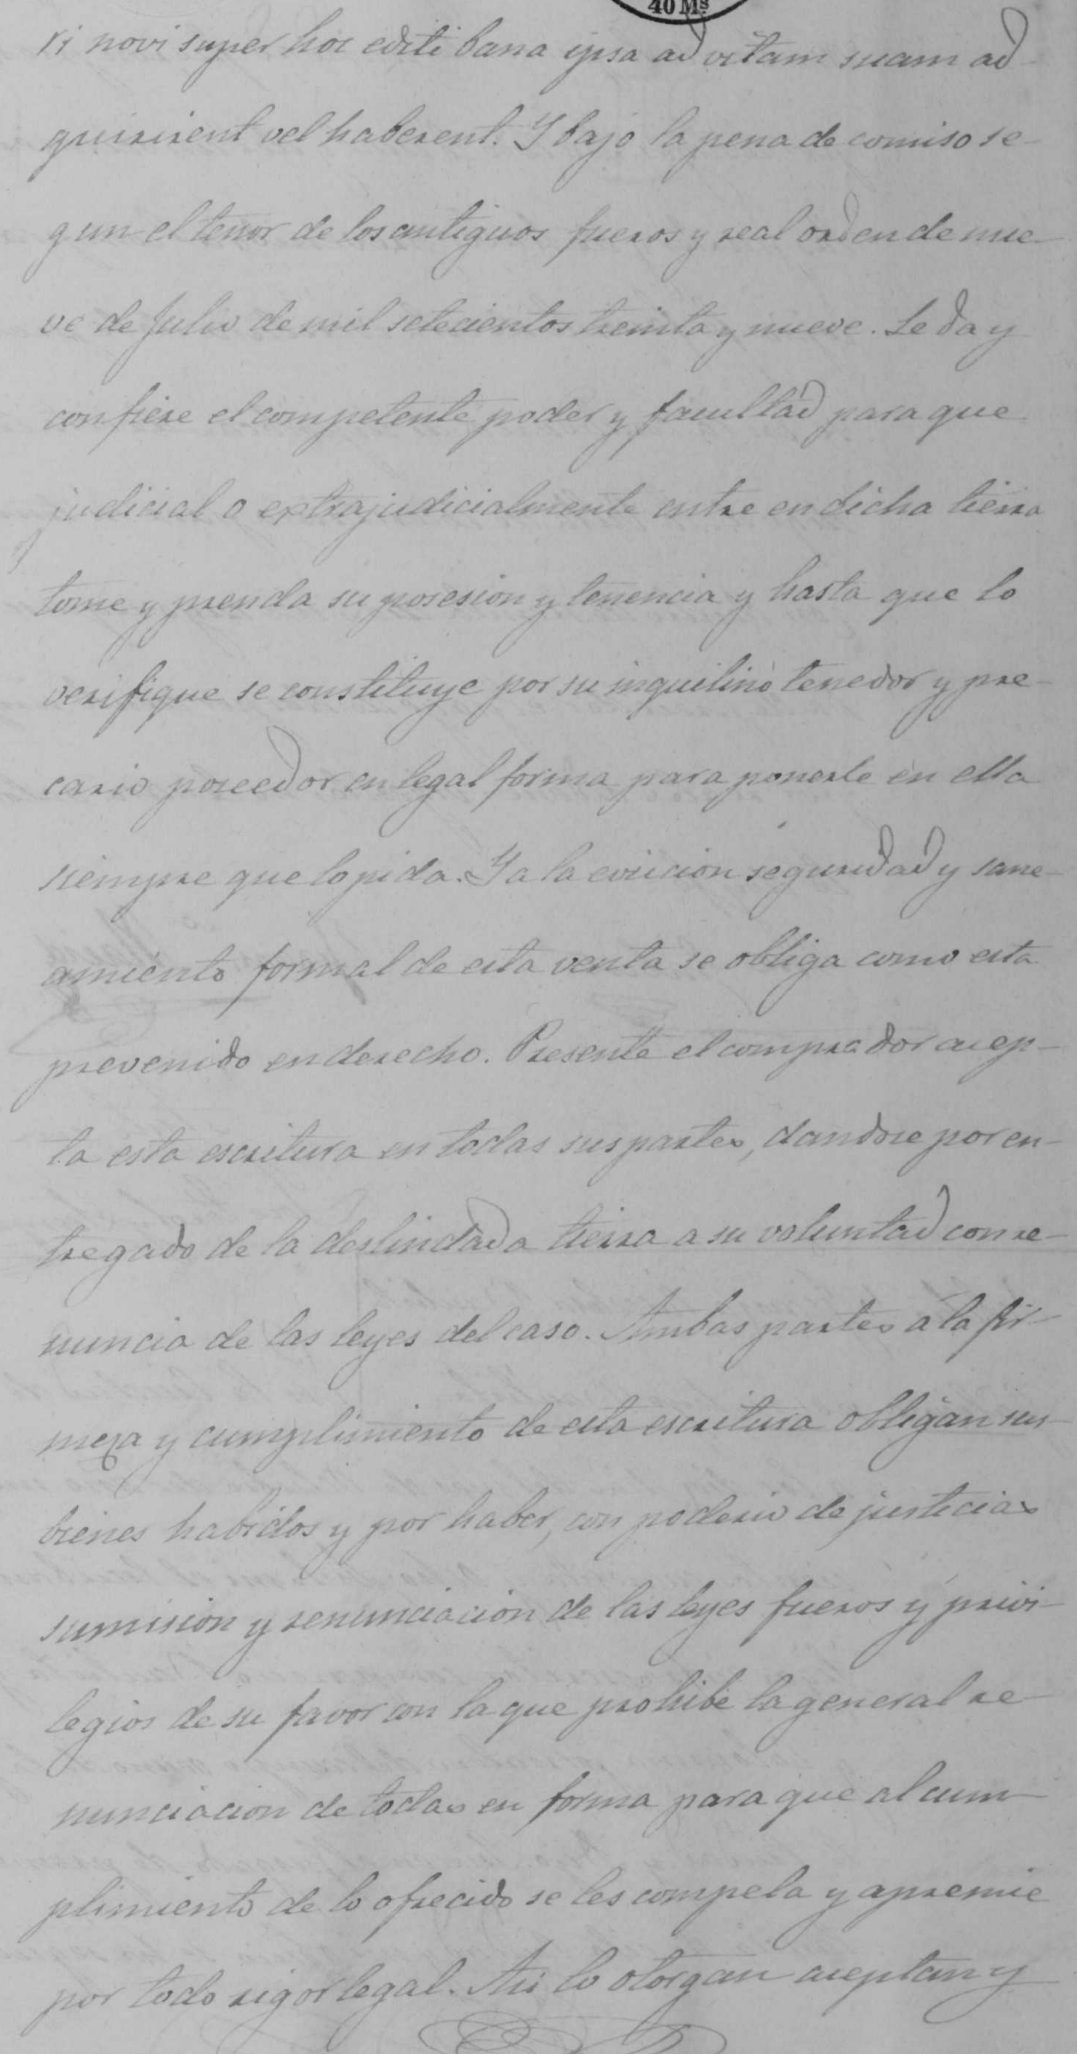 40 Ms
ri novi super hoc editi bana ipsa ad vitam suam ad-
quirirent vel haberent. Y bajo la pena de comiso se-
gun el tenor de los antiguos fueros y real orden de nue-
ve de Julio de mil setecientos treinta y nueve. Le da y
confiere el competente poder y facultad para que
judicial o extrajudicialmente entre en dicha tierra
tome y prenda su posesion y tenencia y hasta que lo
verifique se constituye por su inquilino tenedor y pre-
cario poseedor en legal forma para ponerle en ella
siempre que lo pida. Y a la eviccion seguridad y sane-
amiento formal de esta venta se obliga como esta
prevenido en derecho. Presente el comprador acep-
ta esta escritura en todas sus partes, dandose por en-
tregado de la deslindada tierra a su voluntad con re-
nuncia de las leyes del caso. Ambas partes á la fir-
meza y cumplimiento de esta escritura obligan sus
bienes habidos y por haber, con poderio de justicias
sumision y renunciacion de las leyes fueros y privi-
legios de su favor con la que prohibe la general re-
nunciacion de todas en forma para que al cum-
plimiento de lo ofrecido se les compela y apremie
por todo rigor legal. Asi lo otorgan aceptan y